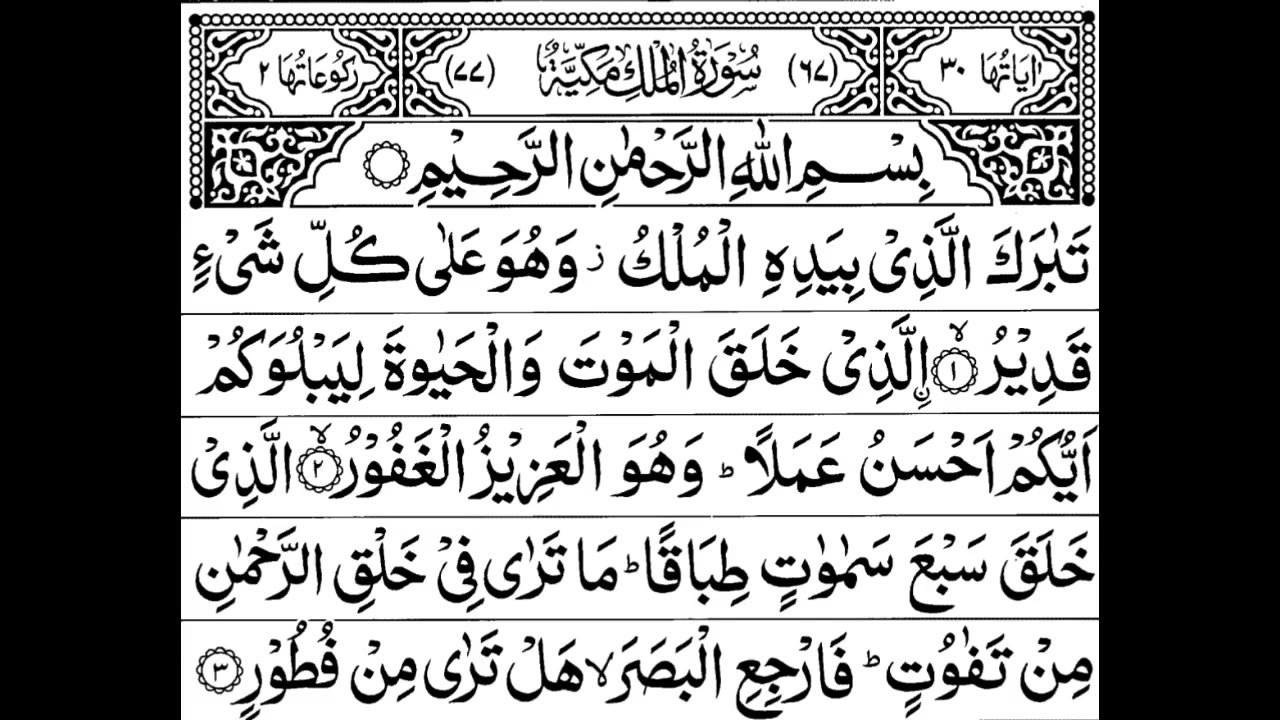 اٰيَاتُهَا ٣٠ (٦٧) سُوْرَةُ الْمُلْكِ مَكِّيَّةٌ (٧٧) رُكُوْعَاتُهَا ٢
بِسْمِ اللهِ الرَّحْمٰنِ الرَّحِيْمِ
تَبٰرَكَ الَّذِىْ بِيَدِهِ الْمُلْكُ ز وَهُوَ عَلٰى كُلِّ شَىْءٍ
قَدِيْرُ ۙ﴿١﴾ اۨلَّذِىْ خَلَقَ الْمَوْتَ وَالْحَيٰوةَ لِيَبْلُوَكُمْ
اَيُّكُمْ اَحْسَنُ عَمَلًا ؕ وَهُوَ الْعَزِيْزُ الْغَفُوْرُ ۙ﴿٢﴾ الَّذِىْ
خَلَقَ سَبْعَ سَمٰوٰتٍ طِبَاقًا ؕ مَا تَرٰى فِىْ خَلْقِ الرَّحْمٰنِ
مِنْ تَفٰوُتٍ ؕ فَارْجِعِ الْبَصَرَ ۙ هَلْ تَرٰى مِنْ فُطُوْرٍ ﴿٣﴾